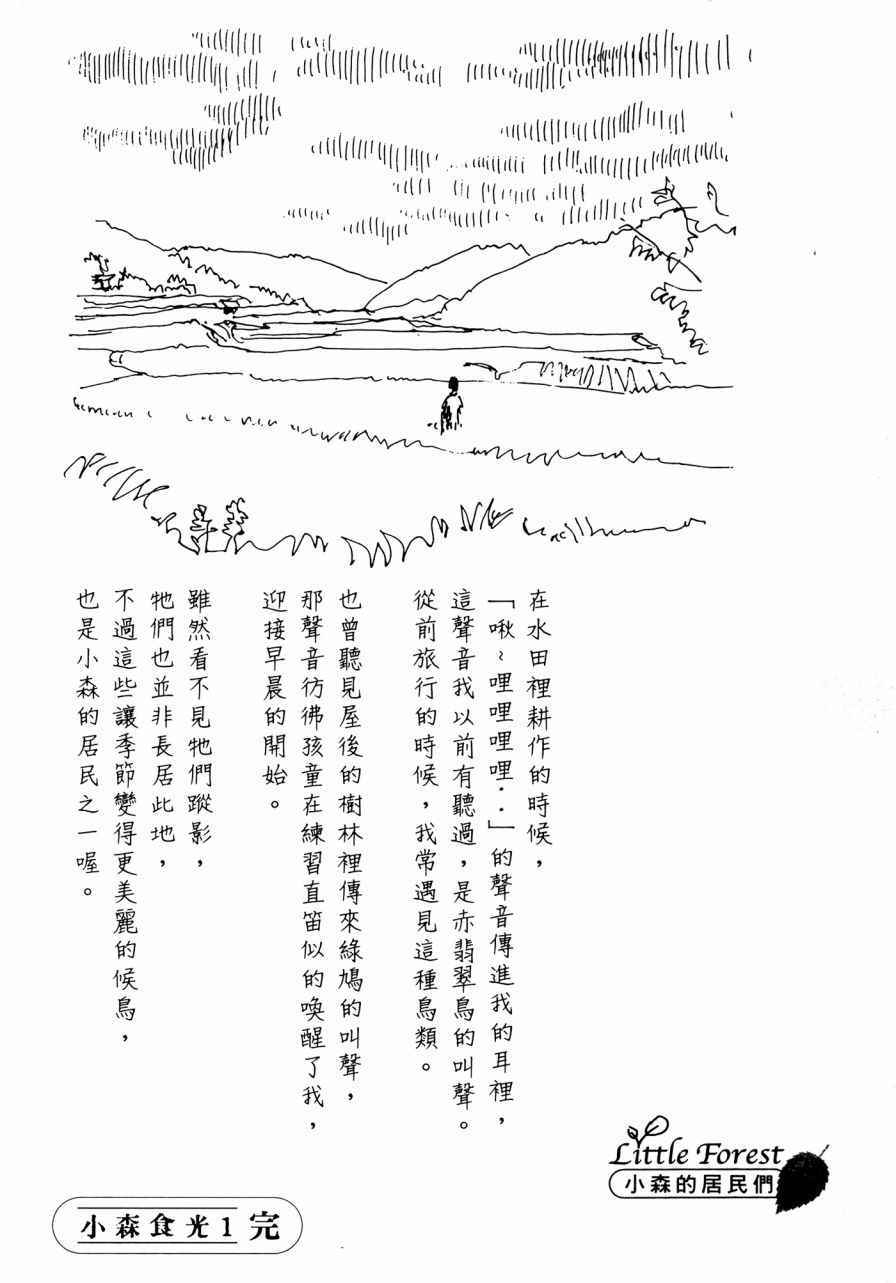 在水田裡耕作的時候，
「啾～哩哩哩哩‥」的聲音傳進我的耳裡，
這聲音我以前有聽過，是赤翡翠鳥的叫聲。
從前旅行的時候，我常遇見這種鳥類。
也曾聽見屋後的樹林裡傳來綠鳩的叫聲，
那聲音彷彿孩童在練習直笛似的喚醒了我，
迎接早晨的開始。
雖然看不見牠們蹤影，
牠們也並非長居此地，
不過這些讓季節變得更美麗的候鳥，
也是小森的居民之一喔。
Little Forest
小森的居民們
小森食光1 完